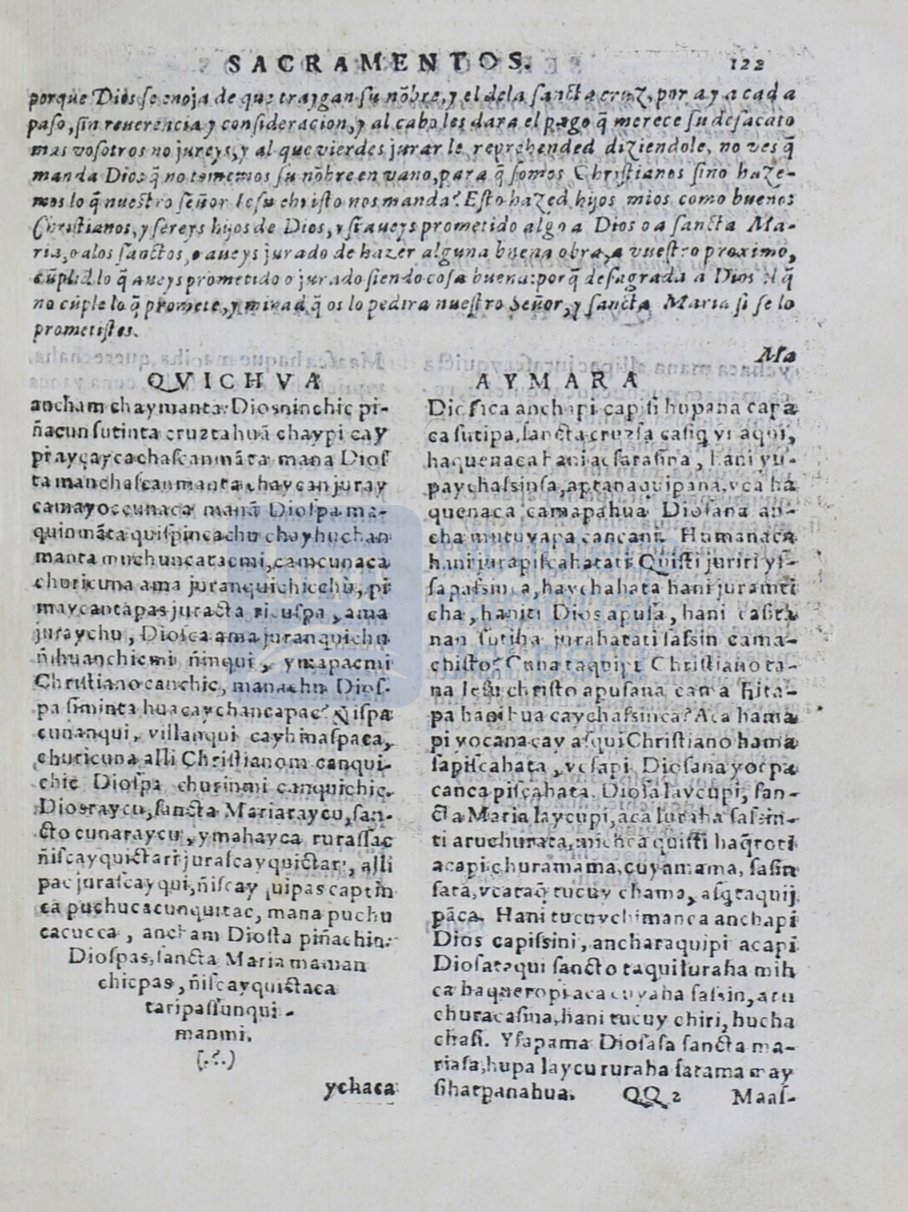 SACRAMENTOS. 122
porque Dios se enoja de que traygan su nõbre, y el dela sancta cruz, por ay a cada
paso, sin reuerencia y consideracion, y al cabo les dara el pago q̃ merece su desacato
mas vosotros no jureys, y al que vierdes jurar le reprehended diziendole, no ves q̃
manda Dios q̃ no tomemos su nõbre en vano, para q̃ somos Christianos sino haze-
mos lo q̃ nuestro señor Iesu christo nos manda? Esto hazed hijos mios como buenos
Christianos, y sereys hijos de Dios, y si aueys prometido algo a Dios o a sancta Ma-
ria, o alos sanctos, o aueys jurado de hazer alguna buena obra, a vuestro proximo,
cũplid lo q̃ aueys prometido o jurado siendo cosa buena: porq̃ desagrada a Dios el q̃
no cũple lo q̃ promete, y mirad q̃ os lo pedira nuestro Señor, y sancta Maria si se lo
prometistes.
Ma
QVICHVA
ancham chaymanta Diosninchic pi-
ñacun sutinta cruztahuã chaypi cay
pi ayçaycachascanmãta mana Dios
ta manchascanmanta, chaycan juray
camayoccunaca manã Diospa ma-
quinmãta quispincachu chay huchan
manta muchuncatacmi, camcunaca
churicuna ama juranquichicchu, pi
maycantapas juracta ricuspa, ama
juraychu, Diosca ama juranquichu
ñihuanchicmi ñinqui, ymapacmi
Christiano canchic, manachu Dios-
pa siminta huacaychancapac? Ñispa
cunanqui, villanqui cayhinaspaca,
churicuna alli Christianom canqui-
chic Diospa churinmi canquichic.
Diosraycu, sancta Mariaraycu, san-
cto cunaraycu, ymahayca rurassac
ñiscayquictari jurascayquictari, alli
pac jurascayqui, ñiscay quipas captin
ca puchucacunquitac, mana puchu
cacucca, ancham Diosta piñachin.
Diospas, sancta Maria maman
chicpas, ñiscayquictaca
taripassunqui-
manmi.
(.⸫.)
ychaca
AYMARA
Dic sica anchapi capisi hupana capa
ca sutipa, sancta cruzsa casiq̃ vi aqui,
haquenaca hani acsarasina, hani yu-
paychassinsa, aptanaquipana, vca ha
quenaca camapahua Diosana an-
cha mutuyapa cancani. Humanaca
hani jurapiscahatati Quisti juriri yis-
sapassin a, haychahata hani juramti
cha, haniti Dios apusa, hani casita
nan sutiha jurahatati sassin cama-
chisto? Cuna taquipi Christiano ca-
na Iesu christo apusana can a hita-
pa hani hua caychassinca? Aca hama
pi yocanacay asqui Christiano hama
sapiscahata, vcsapi Diosana yocpa
canca piscahata. Diosa laycupi, san-
cta Maria laycupi, aca luraha sassin-
ti aruchurata, michca quisti haq̃roti
acapi churamama, cuyamama, sasin
sata, vcataq̃ tucuy chama, asq̃ taquij
pãca. Hani tucuychimanca anchapi
Dios capissini, ancharaquipi acapi
Diosataqui sancto taqui luraha mih
ca haqueropi aca cuyaha sassin, aru
churacasina, hani tucuy chiri, hucha
chasi. Ysapama Diosasa sancta ma-
riasa, hupa laycu ruraha satama may
sihatpanahua. QQ 2 Maas-